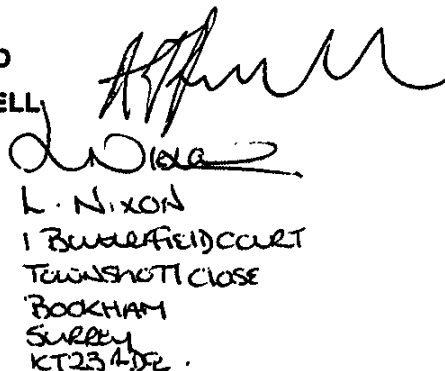 D
ELL
L. NIXON
1 BUTTERFIELD COURT
TOWNSHOTT CLOSE
BOOKHAM
SURREY
KT23